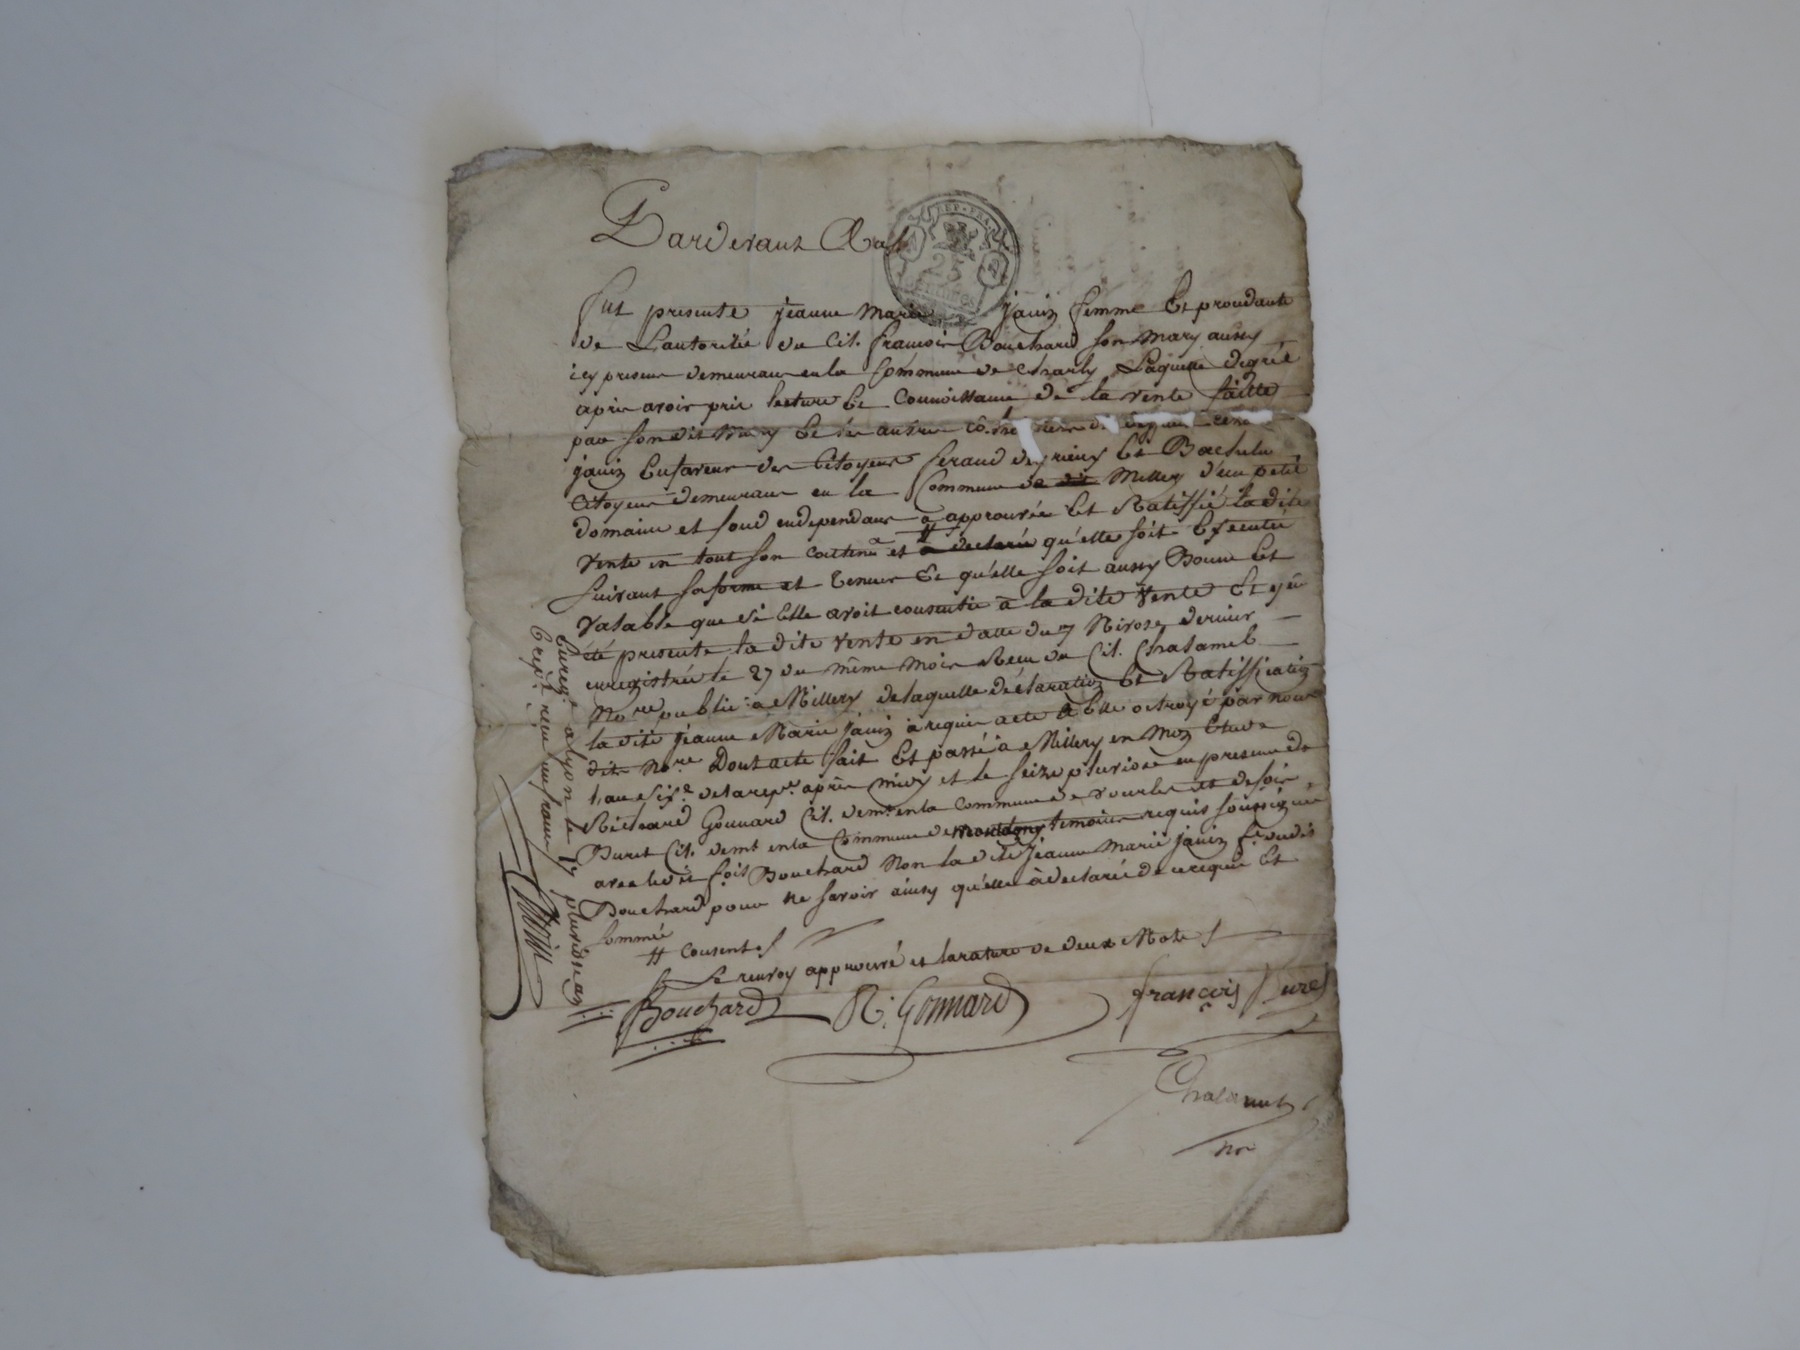 Pardevant
REP. FRA.
25
CENTIMES
fut presente jeanne Marie Janin femme Et procedante
de L'autorité du Cit. francois Bouchard son Mary aussy
icy present demeurant en la Commune de Charly Laquelle de gré
après avoir pris lecture Et Connoissance de la vente faitte
par son dit Mary Et les autres
Janin En faveur des Citoyens feraud Et
Citoyens demeurant en la Commune de dit Millery d'un petit
domaine et fond en dependant a approuvée Et Ratiffié la dite
vente en tout son contenu et # a declaré qu'elle soit Executée
suivant sa forme et teneur Et qu'elle soit aussy Bonne Et
valable que si Elle avoit consentie à la dite vente Et
été presente la dite vente en datte du 7 Nivose dernier
enregistrée le 27 du même mois Recu du Cit. Chalamel
No.re public à Millery de laquelle déclaration Et Ratiffication
la dite jeanne Marie Janin à requis acte à Elle octroyé par nous
dit No.re Dont acte fait Et passé à Millery en mon Etude
L'an six.e de la rep.e après midy et le seize pluviose en presence de
Richard Gonnard Cit. dem.t en la Commune de vourles et de
Buret Cit. demt en la Commune de montagny temoins requis soussignés
avec le dit fçois Bouchard Non la dite jeanne Marie Janin f.e dudit
Bouchard pour ne savoir ainsy qu'elle à declaré de ce requise Et
sommée
# consent
Le renvoy approuvé et la rature de deux Mots
Bouchard R. Gonnard françois Buret
Chalamel
nre
Enreg.é a Lyon le 17 pluviose an 6
rep.e reçu un franc